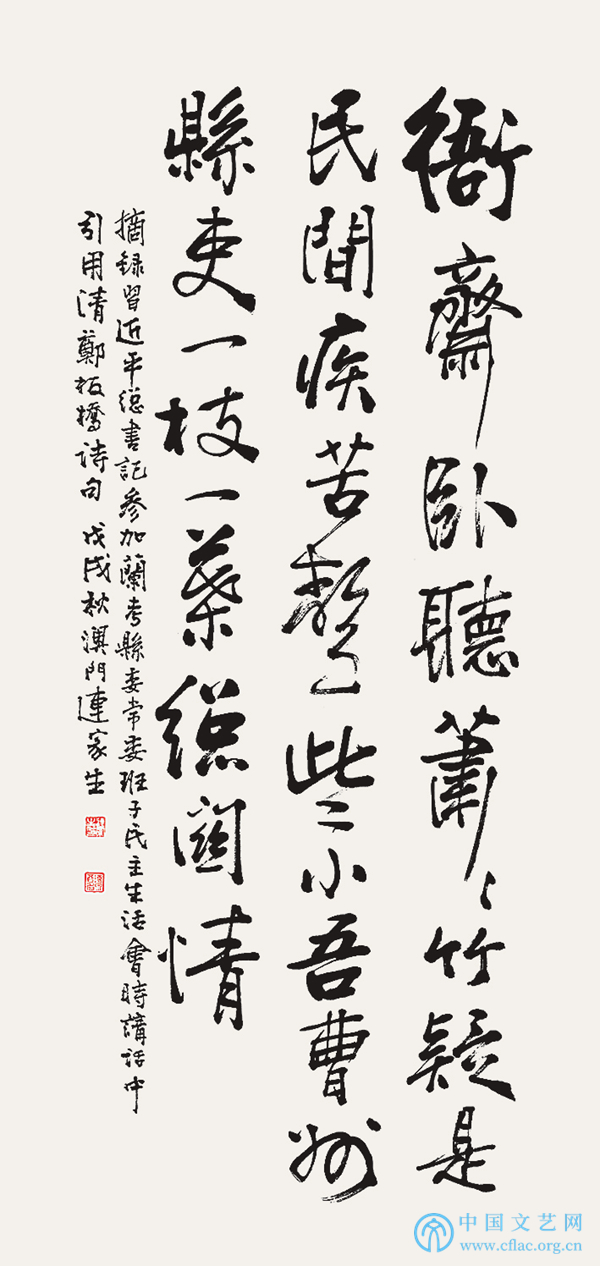 衙齋卧聽蕭〻竹疑是
民間疾苦聲些小吾曹州
縣吏一枝一葉總關情
摘録習近平總書記參加蘭考縣委常委班子民主生活會時講話中
引用清鄭板橋诗句 戊戌秋澳門連家生
中国文艺网
www.cflac.org.cn